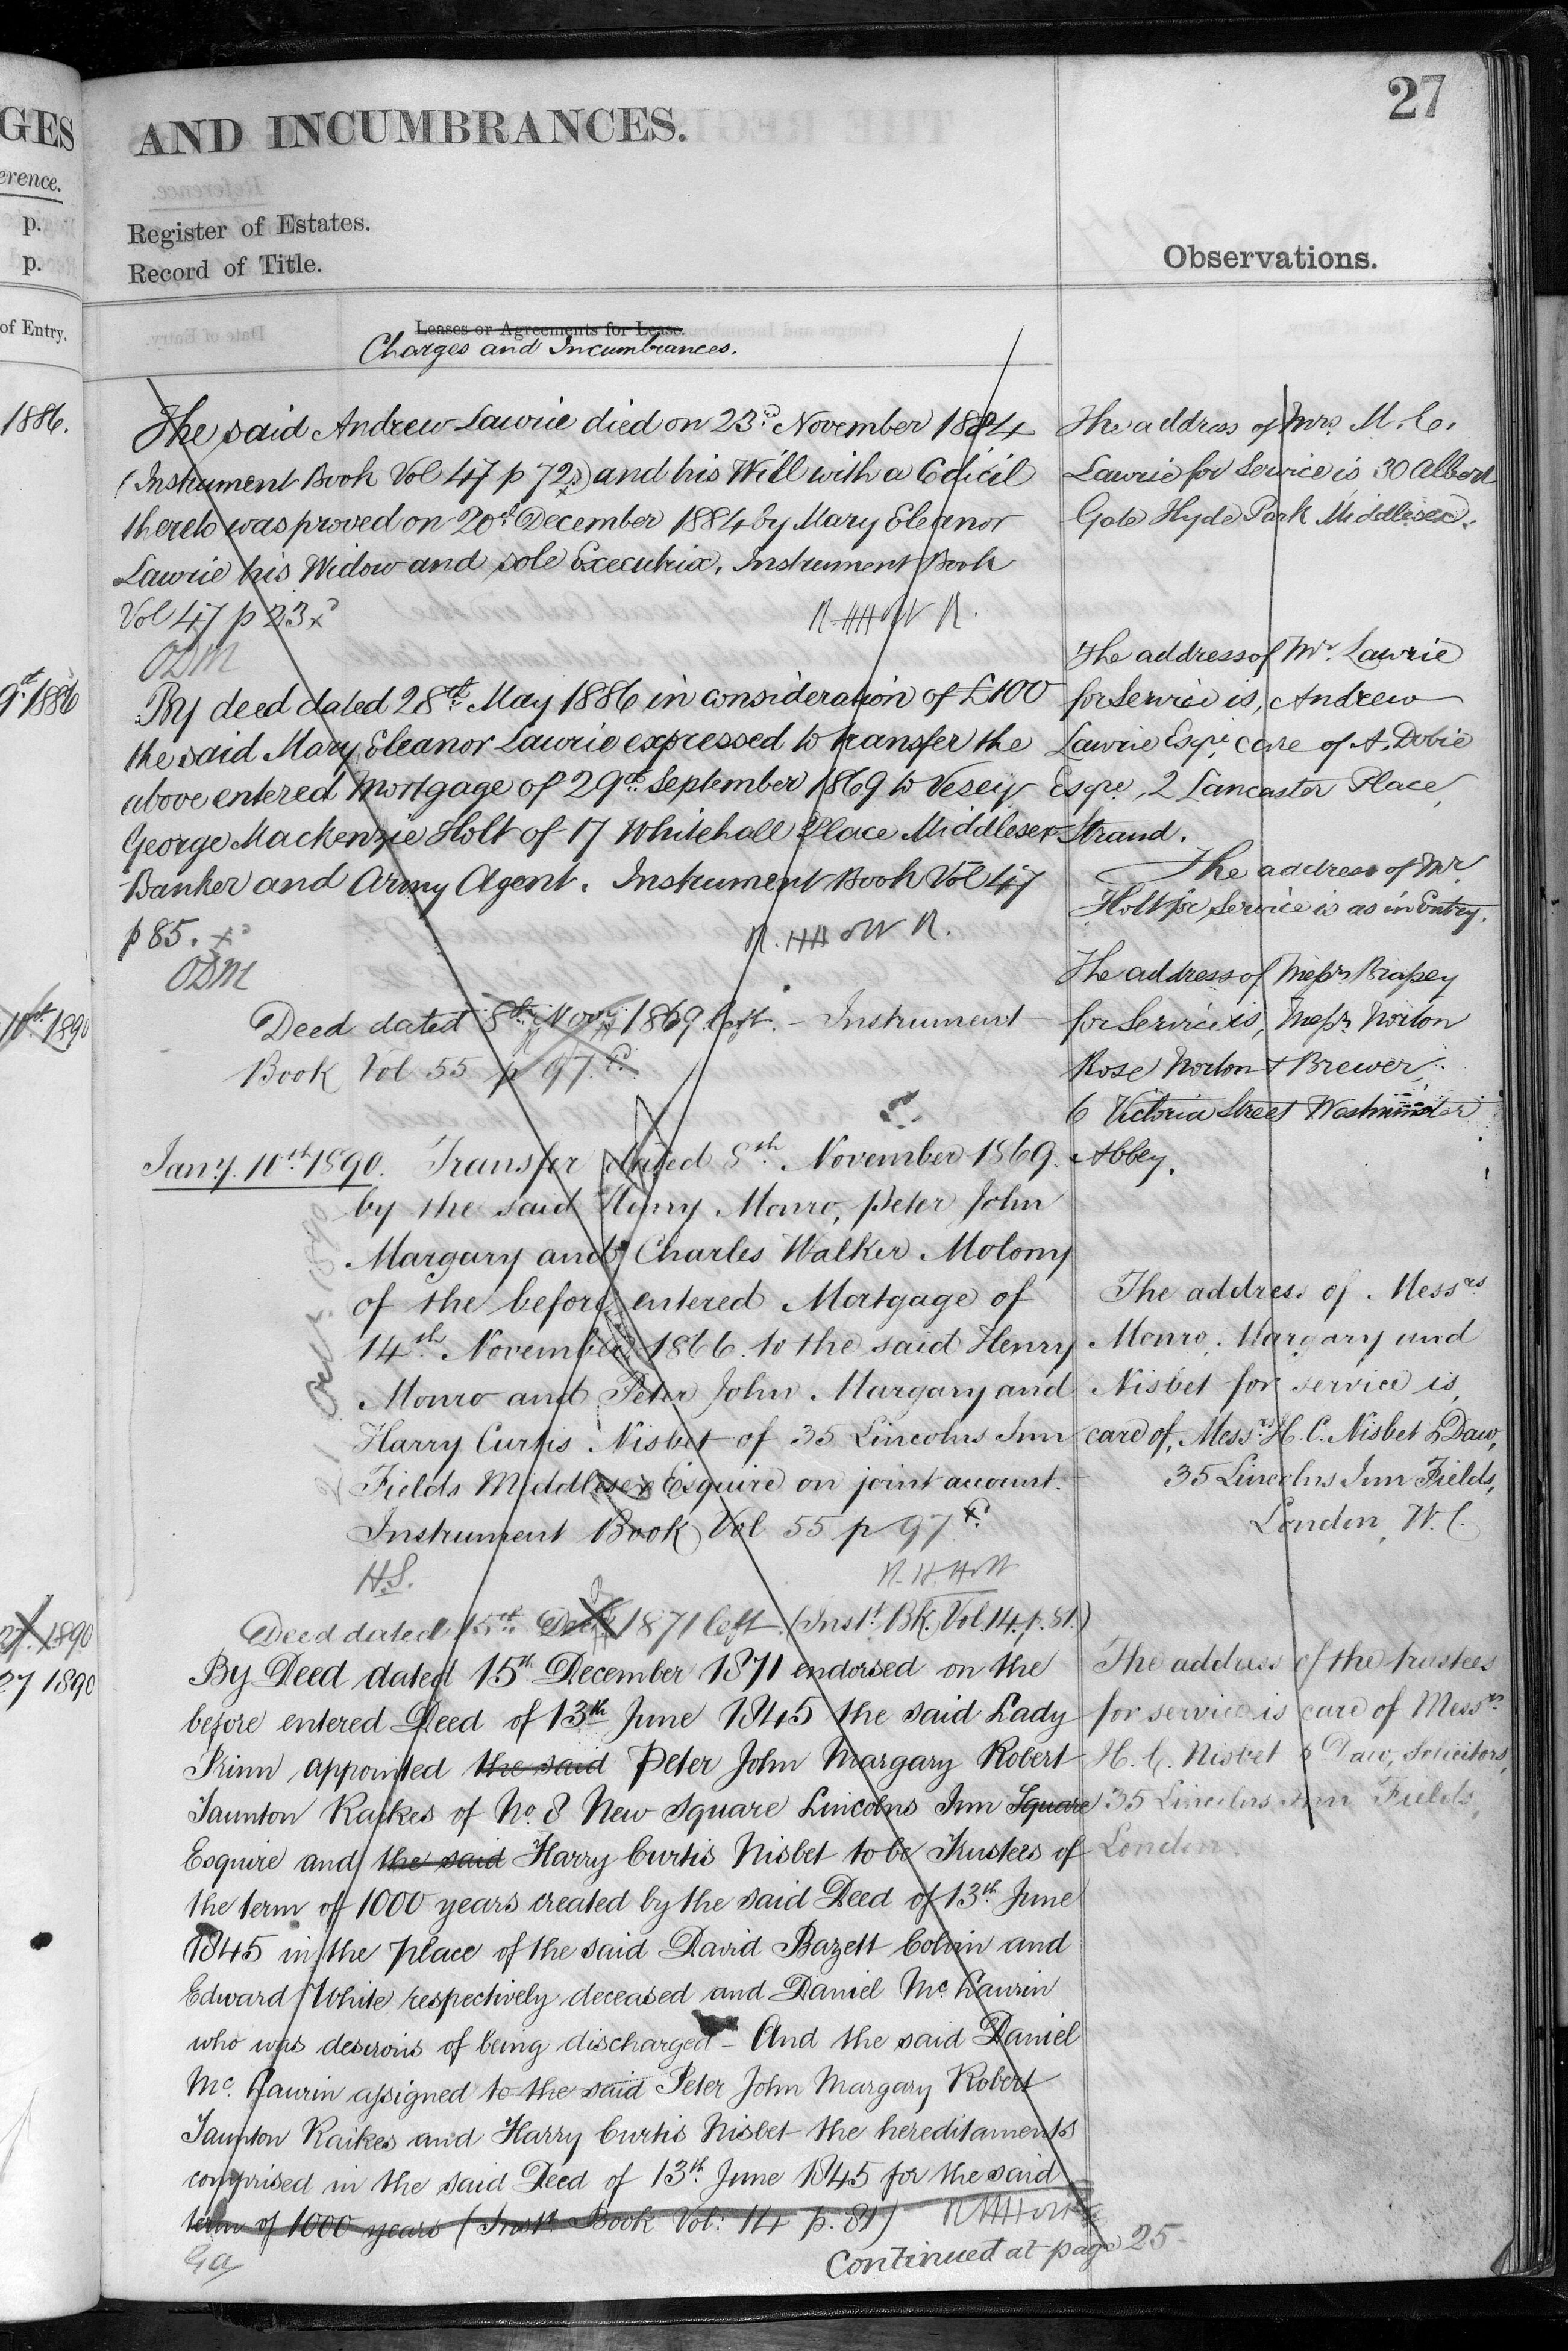 27
GES
AND INCUMBRANCES.
erence.
p.
p.
Register of Estates.
Record of Title.
Observations.
of Entry.
Leases or Agreements for Lease.
Charges and Incumbrances.
1886.
The said Andrew Lawrie died on 23rd November 1884
(Instrument Book Vol 47 p 72) and his Will with a Codicil
thereto was proved on 20th December 1884 by Mary Eleanor
Lawrie his Widow and sole Executrix. Instrument Book
Vol 47 p 23
ODM
9th 1886
By deed dated 28th May 1886 in consideration of £100
the said Mary Eleanor Lawrie expressed to transfer the
above entered Mortgage of 29th September 1869 to Vesey
George Mackenzie Holt of 17 Whitehall Place Middlesex
Banker and Army Agent. Instrument Book Vol 47
p 85.
ODM
10th 1890
Deed dated 8th Novr 1869 left. - Instrument
Book Vol 55 p 97.
Jany. 10th 1890. Transfer dated 8th November 1869
by the said Henry Monro, Peter John
Margary and Charles Walker Molony
of the before entered Mortgage of
14th November 1866 to the said Henry
Monro and Peter John Margary and
Harry Curtis Nisbet of 35 Lincolns Inn
Fields Middlesex Esquire on joint account.
Instrument Book Vol 55 p 97
H.S.
1890
27 1890
Deed dated 15th Decr 1871 left (Inst. Bk. Vol. 14. p. 81.)
By Deed dated 15th December 1871 endorsed on the
before entered Deed of 13th June 1845 the said Lady
appointed the said Peter John Margary Robert
Taunton Raikes of No. 8 New Square Lincolns Inn Square
Esquire and the said Harry Curtis Nisbet to be Trustees of
the term of 1000 years created by the said Deed of 13th June
1845 in the place of the said David Bazett Colvin and
Edward White respectively deceased and Daniel Mc. Laurin
who was desirous of being discharged - And the said Daniel
Mc. Laurin assigned to the said Peter John Margary Robert
Taunton Raikes and Harry Curtis Nisbet the hereditaments
comprised in the said Deed of 13th June 1845 for the said
term of 1000 years (Inst. Book Vol: 14 p. 81)
Ga
Continued at page 25
The address of Mrs. M. E.
Lawrie for Service is 30 Albert
Gate Hyde Park Middlesex.
The address of Mr. Lawrie
for Service is, Andrew
Lawrie Esqre, care of A. Dobie
Esqre, 2 Lancaster Place,
Strand.
The address of Mr
Holt for Service is as in Entry.
The address of Messrs Brassey
for Service is, Messrs Norton
Rose Norton & Brewer,
6 Victoria Street Westminster
Abbey.
The address of Messrs
Monro, Margary and
Nisbet for service is,
care of, Messrs H. C. Nisbet & Daw,
35 Lincolns Inn Fields,
London, W.C.
The address of the trustees
for service is care of Messrs
H. C. Nisbet & Daw, Solicitors,
35 Lincolns Inn Fields,
London.